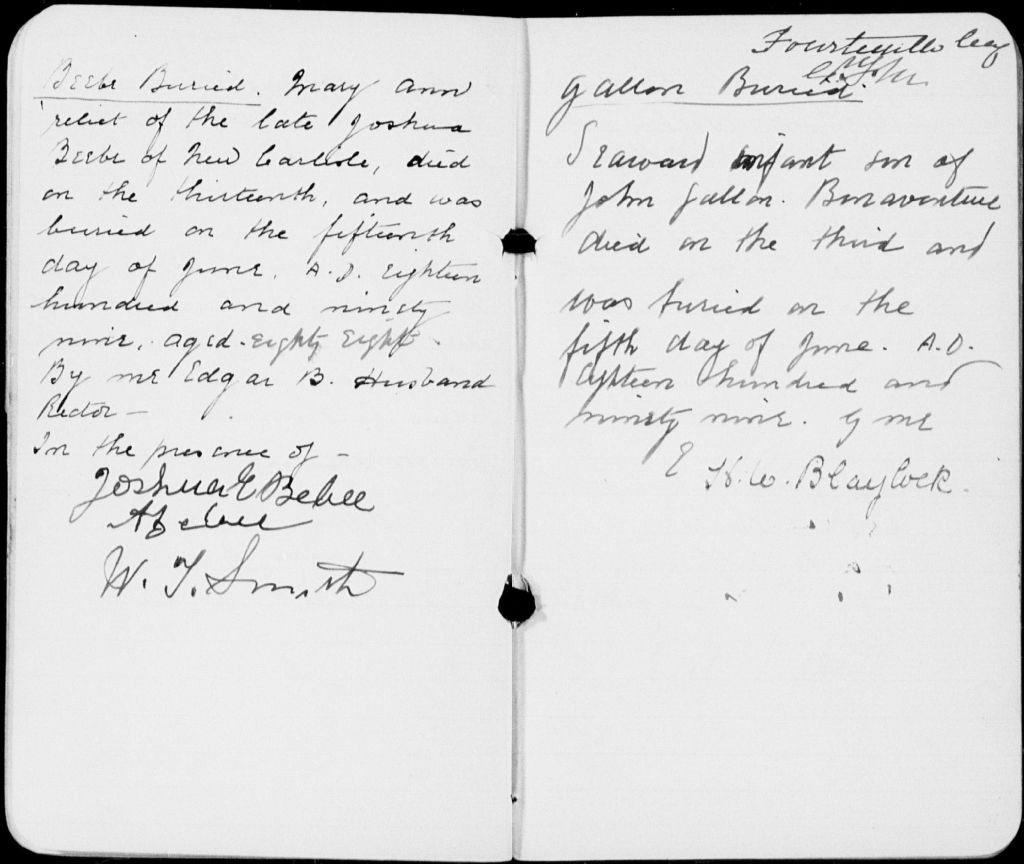 Beebe Buried. Mary Ann
relict of the late Joshua
Beebe of New Carlisle, died
on the thirteenth, and was
buried on the fifteenth
day of June. A.D. Eighteen
hundred and ninety
nine. aged. Eighty Eight.
By me Edgar B. Husband
Rector —
In the presence of —
Joshua E Bebee
W. T. Smith
Gallon Buried.
infant son of
John Gallon. Bonaventure
died on the third and
was buried on the
fifth day of June. A.D.
Eighteen hundred and
ninety nine. by me
E
H. W. Blaylock.